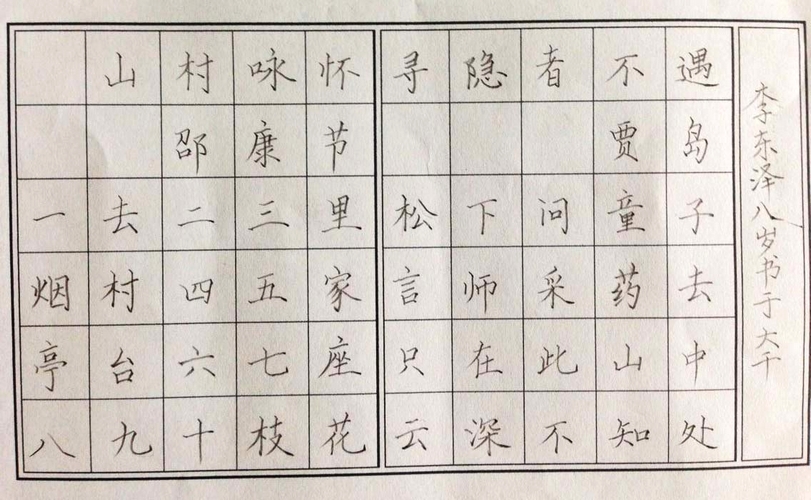 山村咏怀
邵康节
一去二三里
烟村四五家
亭台六七座
八九十枝花
寻隐者不遇
贾岛
松下问童子
言师采药去
只在此山中
云深不知处
李东泽八岁书于大千